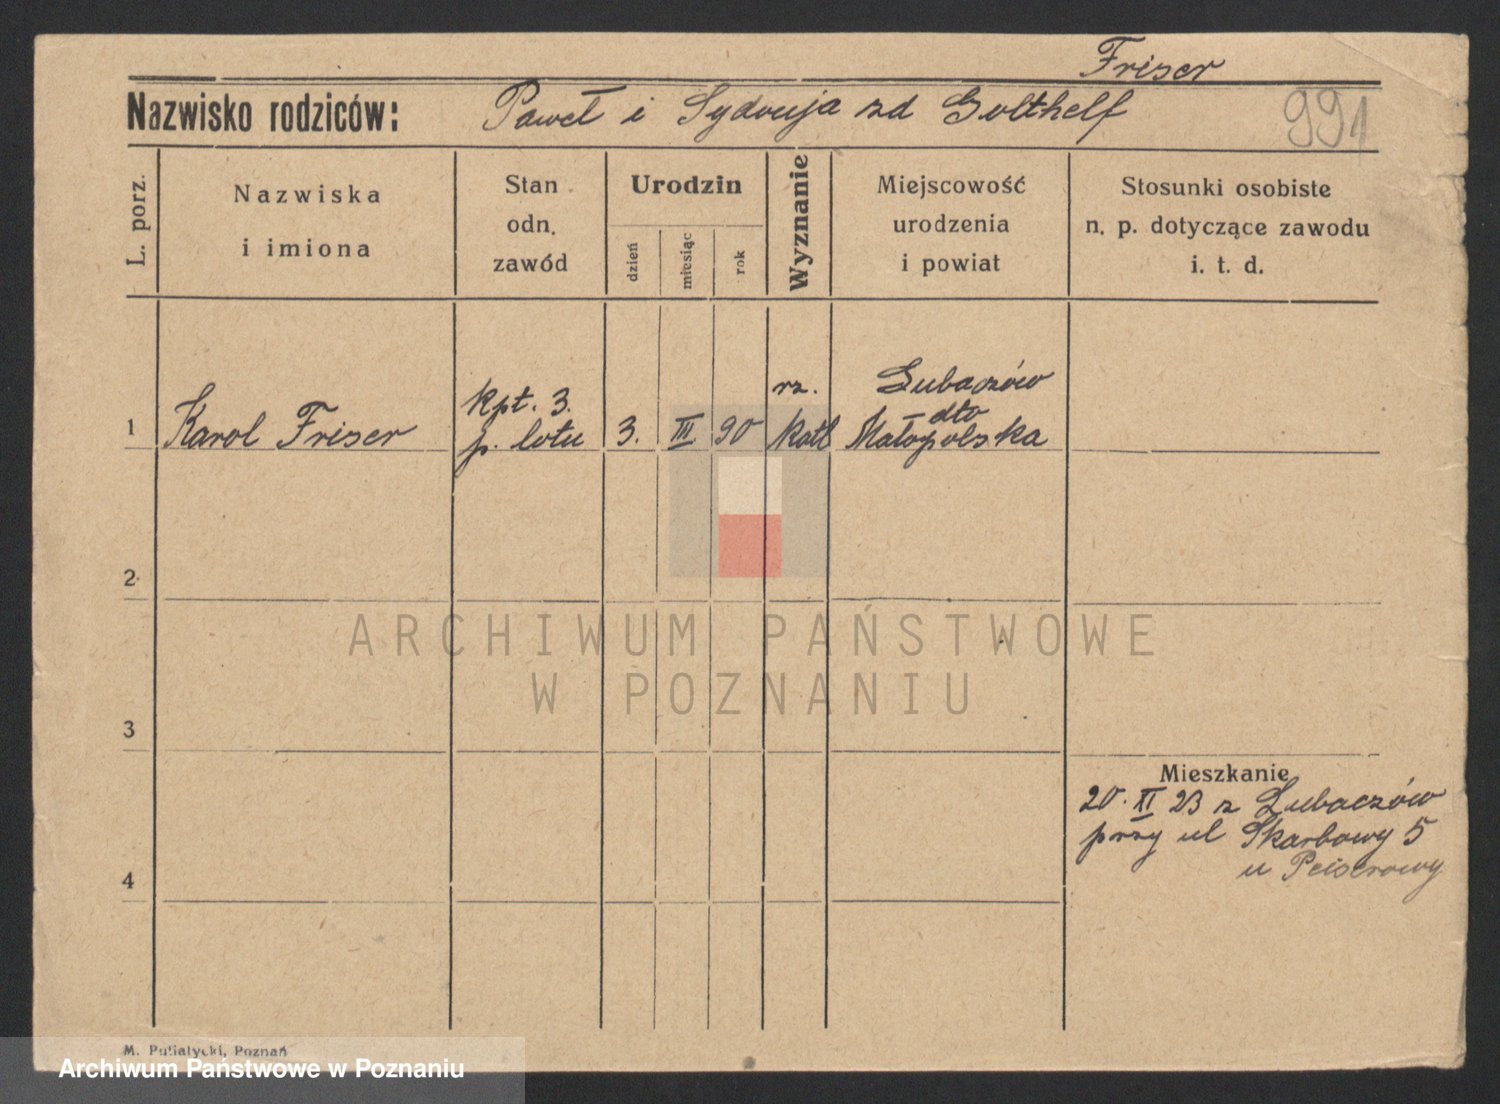 Friser
Nazwisko rodziców: Paweł i Sydonja zd Gotthelf
991
L. porz.
Nazwiska
i imiona
Stan
odn.
zawód
Urodzin
dzień
miesiąc
rok
Wyznanie
Miejscowość
urodzenia
i powiat
Stosunki osobiste
n. p. dotyczące zawodu
i. t. d.
1
Karol Friser
kpt. 3.
p. lotu
3. III 90
rz.
katl
Lubaczów
dto
Małopolska
2
3
4
Mieszkanie
20. XI 23 z Lubaczów
przy ul Skarbowy 5
u Peiserowy
M. Putiatycki, Poznań
ARCHIWUM PAŃSTWOWE
W POZNANIU
Archiwum Państwowe w Poznaniu